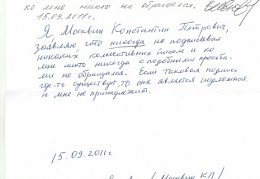 ко мне никто не обращался.
15.09.2011г.
Я, Москвин Константин Петрович,
заявляю, что никогда не подписывал
никаких коллективных писем и ко
мне никто никогда с подобными просьба-
ми не обращался. Если таковая подпись
где-то существует, то она является подложной
и мне не принадлежит.
15.09.2011г
/Москвин К.П/